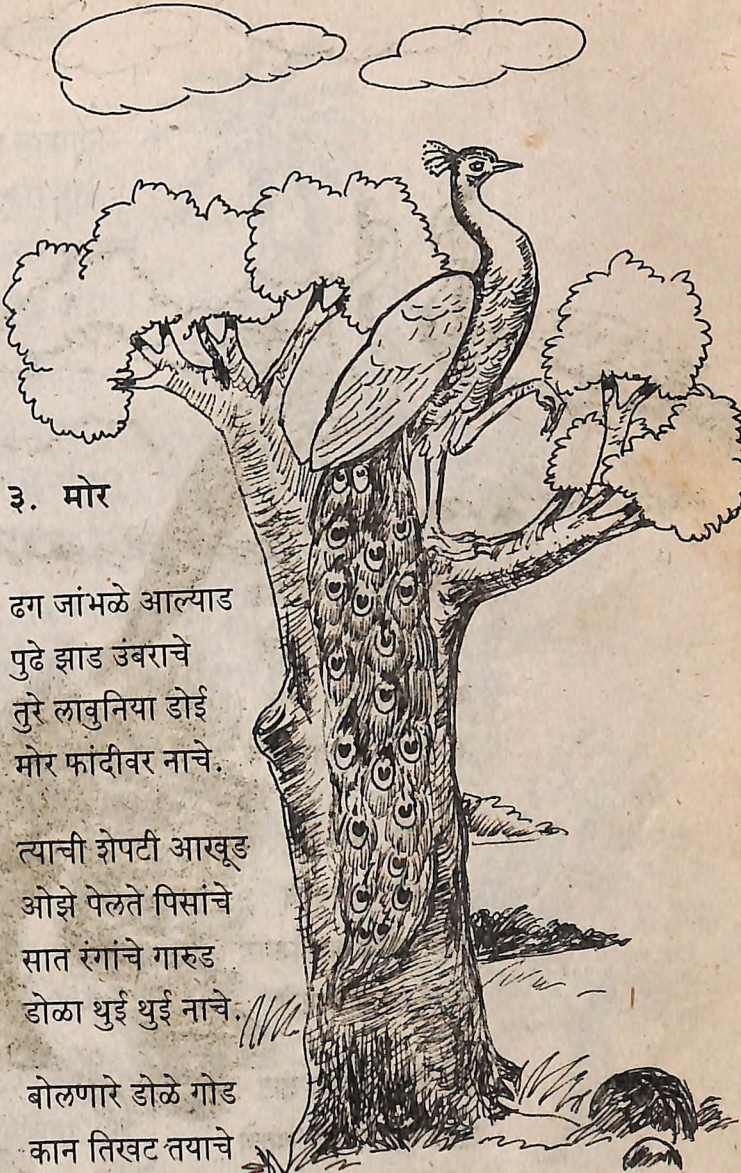 ३. मोर
ढग जांभळे आल्याड
पुढे झाड उंबराचे
तुरे लावुनिया डोई
मोर फांदीवर नाचे.
त्याची शेपटी आखूड
ओझे पेलते पिसांचे
सात रंगांचे गारुड
डोळा थुई थुई नाचे.
बोलणारे डोळे गोड
कान तिखट तयाचे